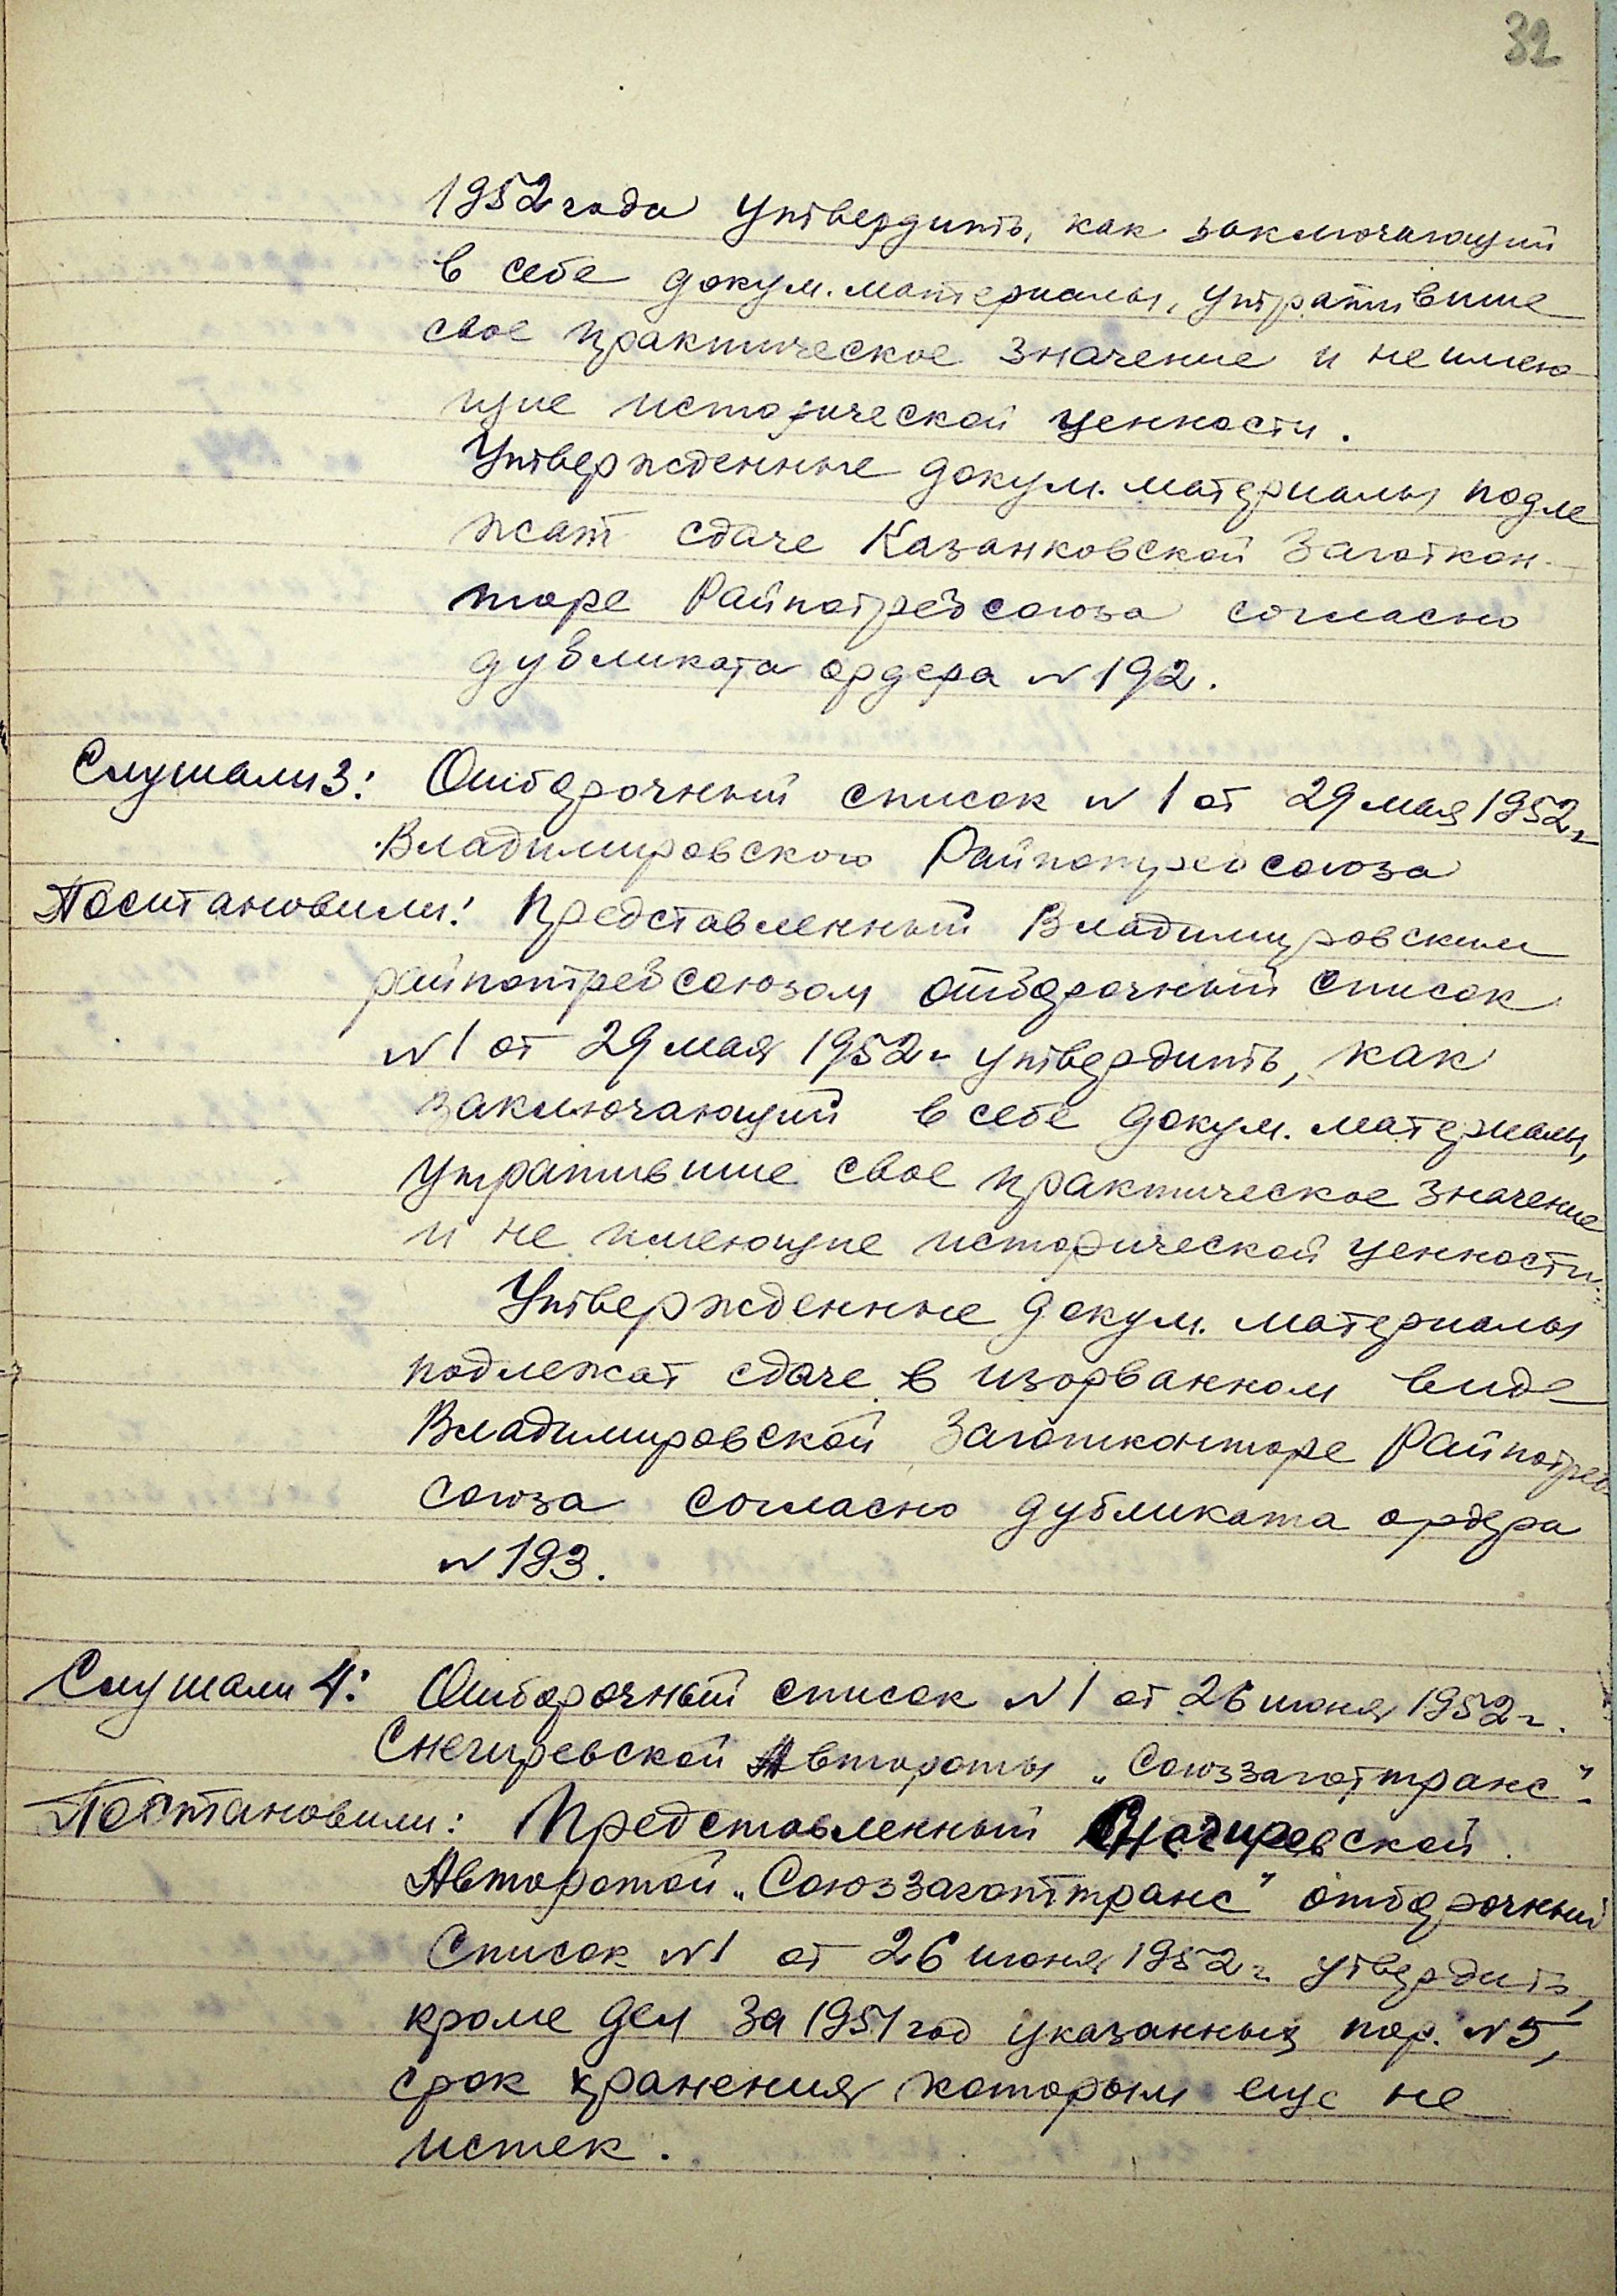 32
1952 года утвердить, как заключающий
в себе докум. материалы, утратившие
свое практическое значение и не имею
щие исторической ценности.
Утвержденные докум. материалы подле
жат сдаче Казанковской Заготкон-
торе Райпотребсоюза согласно
дубликата ордера №192.
Слушали 3: Отборочный список №1 от 29 мая 1952г
Владимировского Райпотребсоюза
Постановили: Представленный Владимировским
райпотребсоюзом отборочный список
№1 от 29 мая 1952г утвердить, как
заключающий в себе докум. материалы,
утратившие свое практическое значение
и не имеющие исторической ценности.
Утвержденные докум. материалы
подлежат сдаче в изорванном виде
Владимировской Заготконторе Райпотреб
союза согласно дубликата ордера
№193.
Слушали 4: Отборочный список №1 от 26 июня 1952г.
Снегиревской Автороты „Союззаготтранс".
Постановили: Представленный Снегиревской
Авторотой „Союззаготтранс" отборочный
Список №1 от 26 июня 1952г. утвердить,
кроме дел за 1951 год указанных пор. №5,
срок хранения которым еще не
истек.